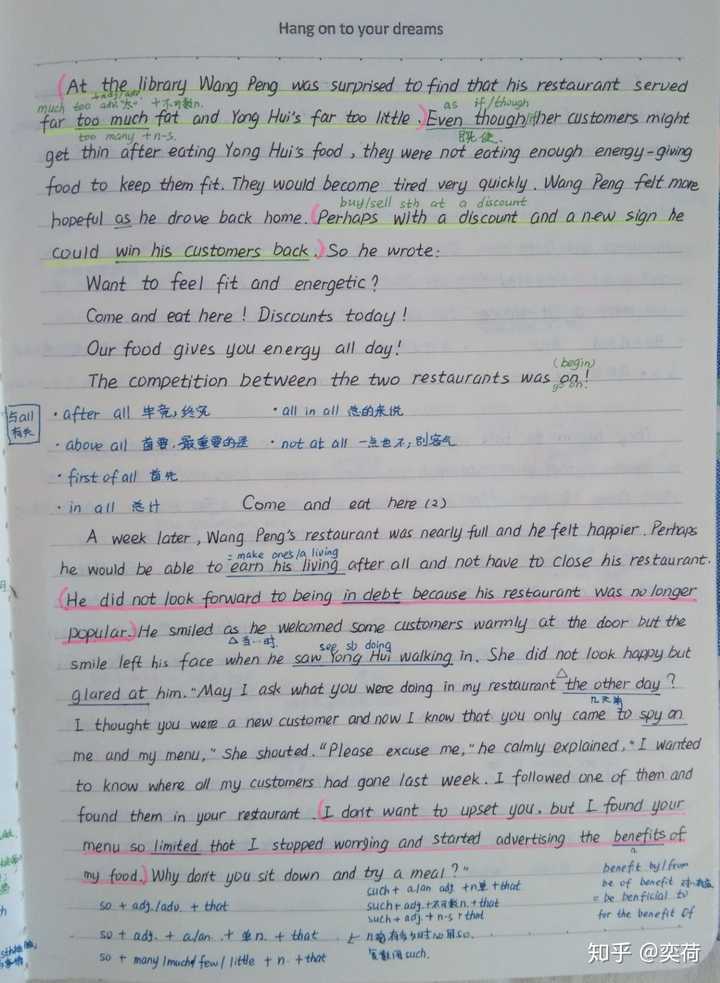 Hang on to your dreams
(At the library Wang Peng was surprised to find that his restaurant served
+adj/adv
much too "太" +不可数n. as if/though
far too much fat and Yong Hui's far too little.) Even though her customers might
too many +n-s. 即使.
get thin after eating Yong Hui's food, they were not eating enough energy-giving
food to keep them fit. They would become tired very quickly. Wang Peng felt more
buy/sell sth at a discount
hopeful as he drove back home. (Perhaps with a discount and a new sign he
could win his customers back.) So he wrote:
Want to feel fit and energetic?
Come and eat here! Discounts today!
Our food gives you energy all day!
(begin)
The competition between the two restaurants was on!
go on.
与all
有关
· after all 毕竟,终究 · all in all 总的来说
· above all 首要.最重要的是 · not at all 一点也不,别客气
· first of all 首先
· in all 总计 Come and eat here (2)
A week later, Wang Peng's restaurant was nearly full and he felt happier. Perhaps
= make ones/a living
he would be able to earn his living after all and not have to close his restaurant.
(He did not look forward to being in debt because his restaurant was no longer
popular.) He smiled as he welcomed some customers warmly at the door but the
△当…时. see sb doing
smile left his face when he saw Yong Hui walking in. She did not look happy but
glared at him. "May I ask what you were doing in my restaurant △ the other day?
几天前
I thought you were a new customer and now I know that you only came to spy on
me and my menu," She shouted. "Please excuse me," he calmly explained, "I wanted
to know where all my customers had gone last week. I followed one of them and
found them in your restaurant. (I don't want to upset you, but I found your
menu so limited that I stopped worrying and started advertising the benefits of
n
my food.) Why don't you sit down and try a meal?"
benefit by/from
such + a/an adj +n单 + that be of benefit
so + adj./adv. + that such + adj. +不可数n. + that = be benficial to
such + adj. + n-s + that for the benefit of
so + adj. + a/an. + 单n. + that
so + many/much/few/little + n. + that 用such.
知乎 @奕荷